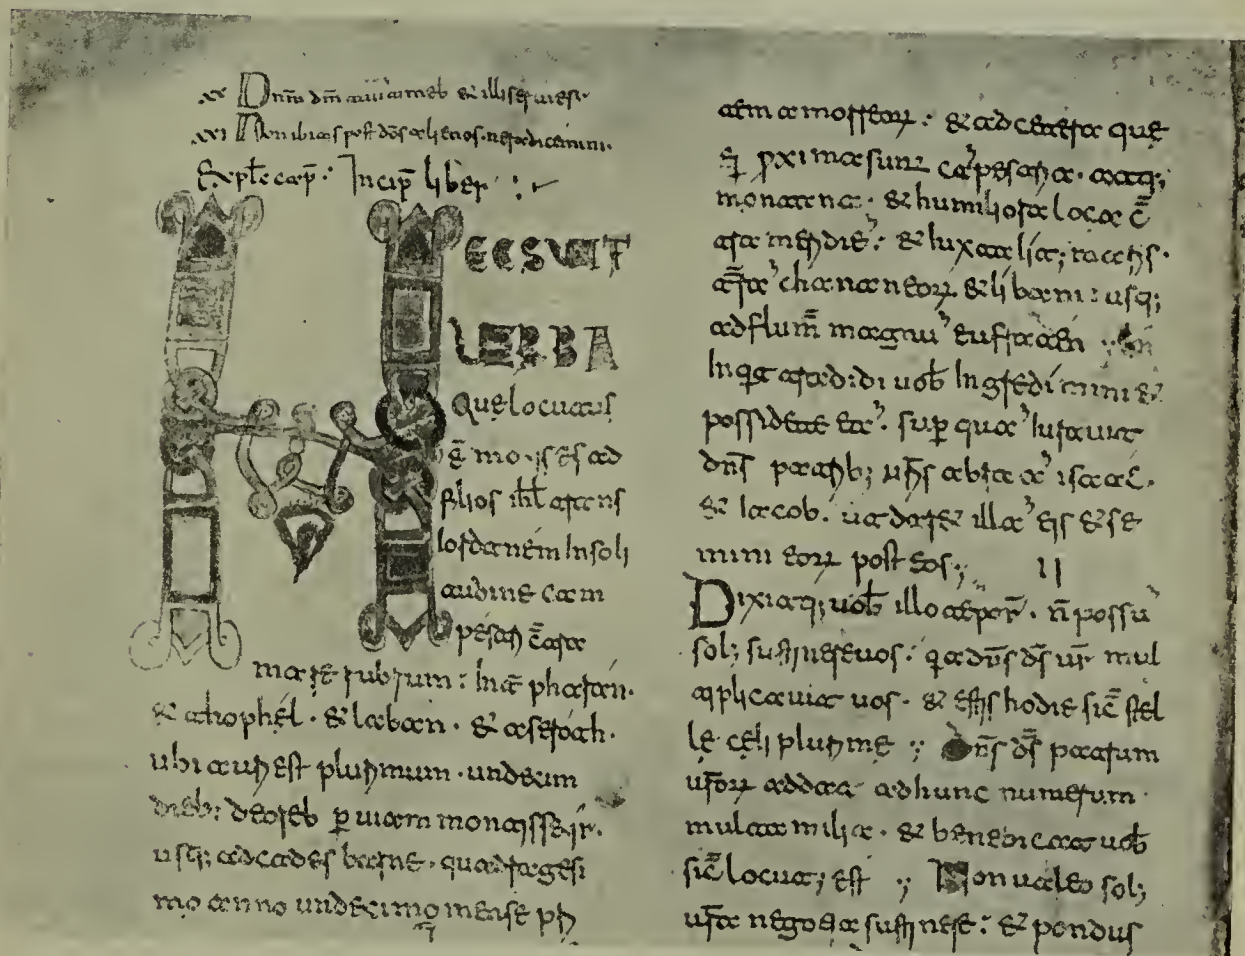 xx Dnm̄ dm̄ tuū timeb & illi seruies.
xxi Non ibitis post dos alienos.
Expl̄ cap̄. Incip̄ liber
HEC SUNT
UERBA
que locutus
ē moyses ad
filios isrl̄ trans
Iordanem In soli
tudine cam
pestri c̄tra
mare rubrum: Int̄ pharan.
& thophel. & laban. & aseroth.
ubi auri est plurimum. undecim
dieb; de oreb p̄ uiam montis seir.
usq; ad cades barne. quadragesi
mo anno undecimo mense pri
tem amorreoꝝ: & ad cetera que
ei pxima sunt cāpestria. atq;
montana. & humiliora loca c̄
tra meridiē: & Iuxta lit; maris.
t̄rā chananeoꝝ & libani: usq;
ad flum̄ magnū eufraten ; En
Inqt tradidi uob̄ Ingredimini &
possidete eā. sup̄ quā Iurauit
dns̄ patrib; ur̄is abraā isaac.
& Iacob. ut daret illā eis & se
mini eoꝝ post eos; II
Dixitq; uob̄ illo tēpor̄. n̄ possū
sol; sustinere uos: qa dns̄ ds̄ ur̄ mul
tiplicauit uos. & estis hodie sic̄ stel
lę cęli plurimę ; Dns̄ ds̄ patrum
ur̄oꝝ addat ad hunc numerum
multa milia. & benedicat uob̄
sic̄ locut; est ; Non ualeo sol;
ur̄a negotia sustinere: & pondus